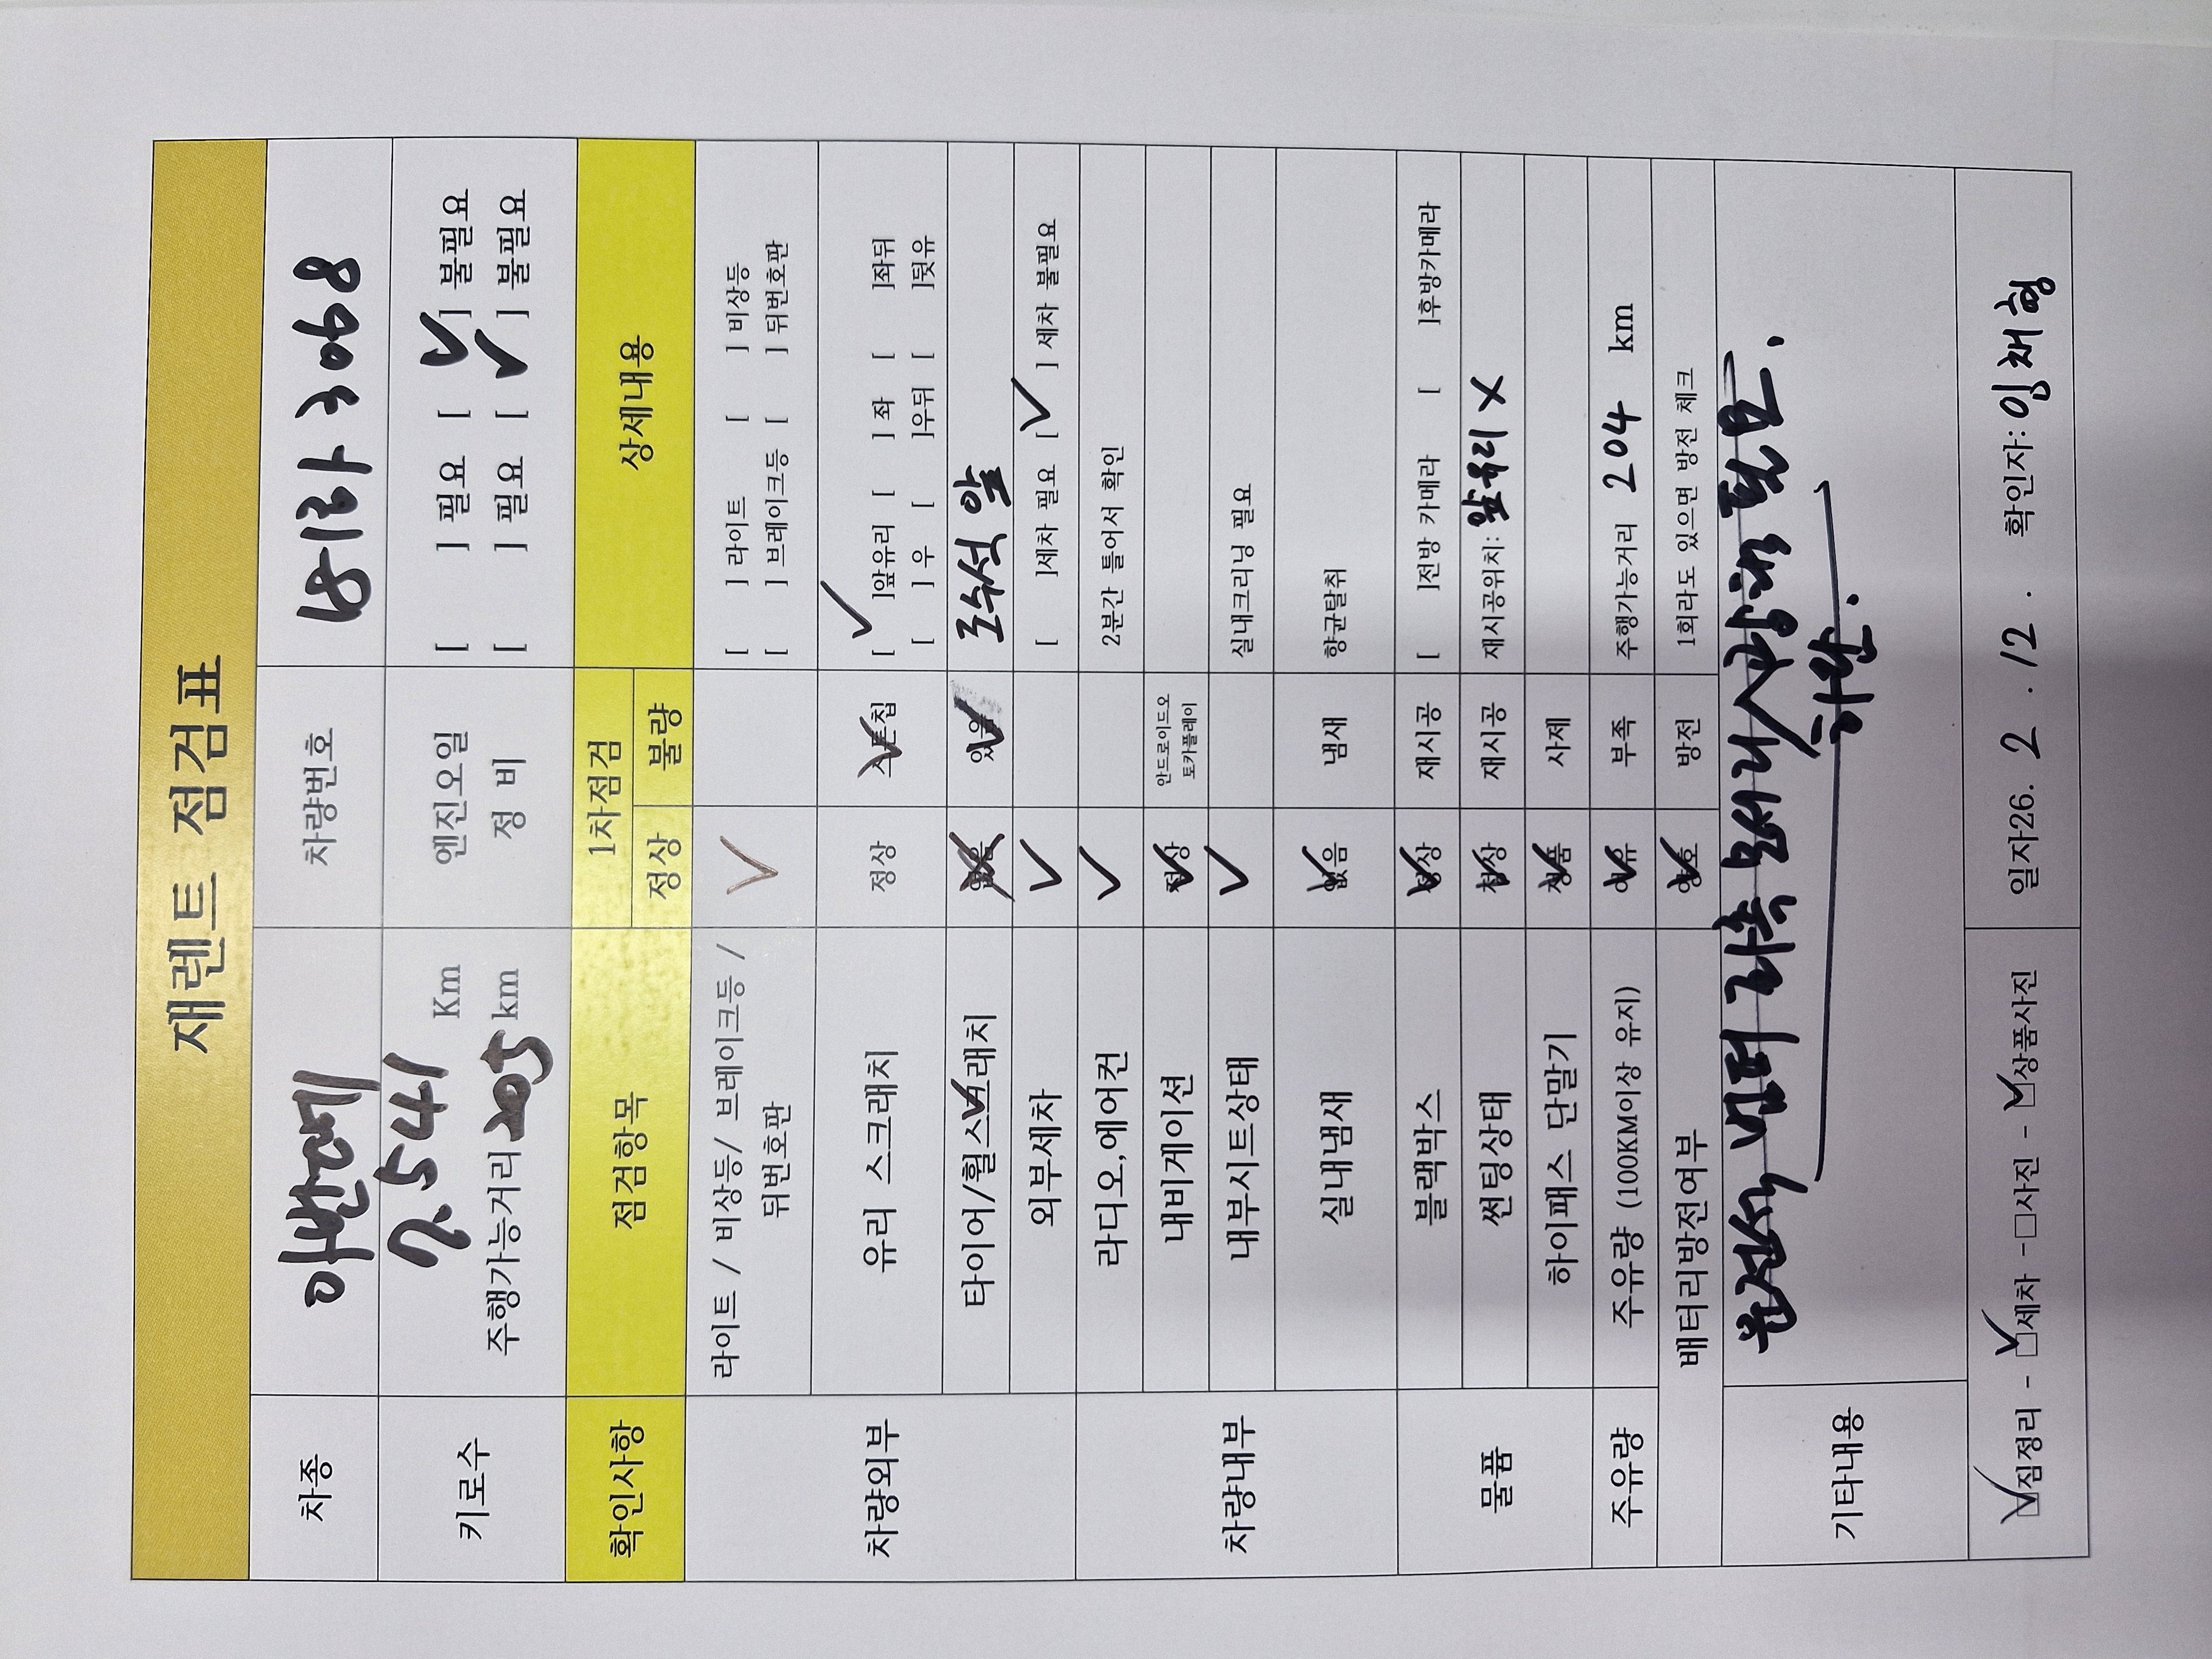 재렌트 점검표
차종 아반떼 차량번호 181라 3068
키로수 7.541 Km 엔진오일 [ ] 필요 [ ✓ ] 불필요
주행가능거리 205 km 정 비 [ ] 필요 [ ✓ ] 불필요
확인사항 점검항목 1차점검 상세내용
정상 불량
차량외부 라이트 / 비상등/ 브레이크등 / 뒤번호판 ✓ [ ] 라이트 [ ] 비상등
[ ] 브레이크등 [ ] 뒤번호판
유리 스크래치 정상 스톤칩 ✓ [ ✓ ]앞유리 [ ] 좌 [ ]좌뒤
[ ] 우 [ ]우뒤 [ ]뒷유
타이어/휠스크래치 없음 있음 ✓ 조수석 앞
외부세차 ✓ [ ]세차 필요 [ ✓ ] 세차 불필요
차량내부 라디오,에어컨 ✓ 2분간 틀어서 확인
내비게이션 정상 ✓ 안드로이드오토카플레이
내부시트상태 ✓ 실내크리닝 필요
실내냄새 없음 ✓ 냄새 향균탈취
물품 블랙박스 정상 ✓ 재시공 [ ]전방 카메라 [ ]후방카메라
썬팅상태 정상 ✓ 재시공 재시공위치: 앞유리 X
하이패스 단말기 정품 ✓ 사제
주유량 주유량 (100KM이상 유지) 여유 ✓ 부족 주행가능거리 204 km
배터리방전여부 양호 ✓ 방전 1회라도 있으면 방전 체크
기타내용 운전석, 범퍼 좌측 모서리
하단.
☑짐정리 - ☑세차 -□사진 - ☑상품사진 일자26. 2 . 12 . 확인자: 임채형